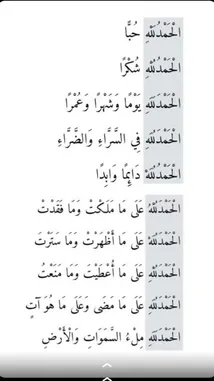 الْحَمْدُلِلّٰهِ حُبًّا
الْحَمْدُلِلّٰهِ شُكْرًا
الْحَمْدُلِلّٰهِ يَوْمًا وَشَهْرًا وَعُمْرًا
الْحَمْدُلِلّٰهِ فِي السَّرَّاءِ وَالضَّرَّاءِ
الْحَمْدُلِلّٰهِ دَايِمًا وَابِدًا
الْحَمْدُلِلّٰهِ عَلَى مَا مَلَكْتُ وَمَا فَقَدْتُ
الْحَمْدُلِلّٰهِ عَلَى مَا أَظْهَرْتُ وَمَا سَتَرْتَ
الْحَمْدُلِلّٰهِ عَلَى مَا أُعْطَيْتَ وَمَا مَنَعْتُ
الْحَمْدُلِلّٰهِ عَلَى مَا مَضَى وَعَلَى مَا هُوَ آتٍ
الْحَمْدُلِلّٰهِ مِلْءُ السَّمَوَاتِ وَالْأَرْضِ